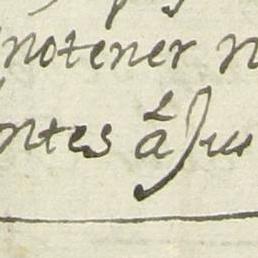 notener n
ntes â Jui